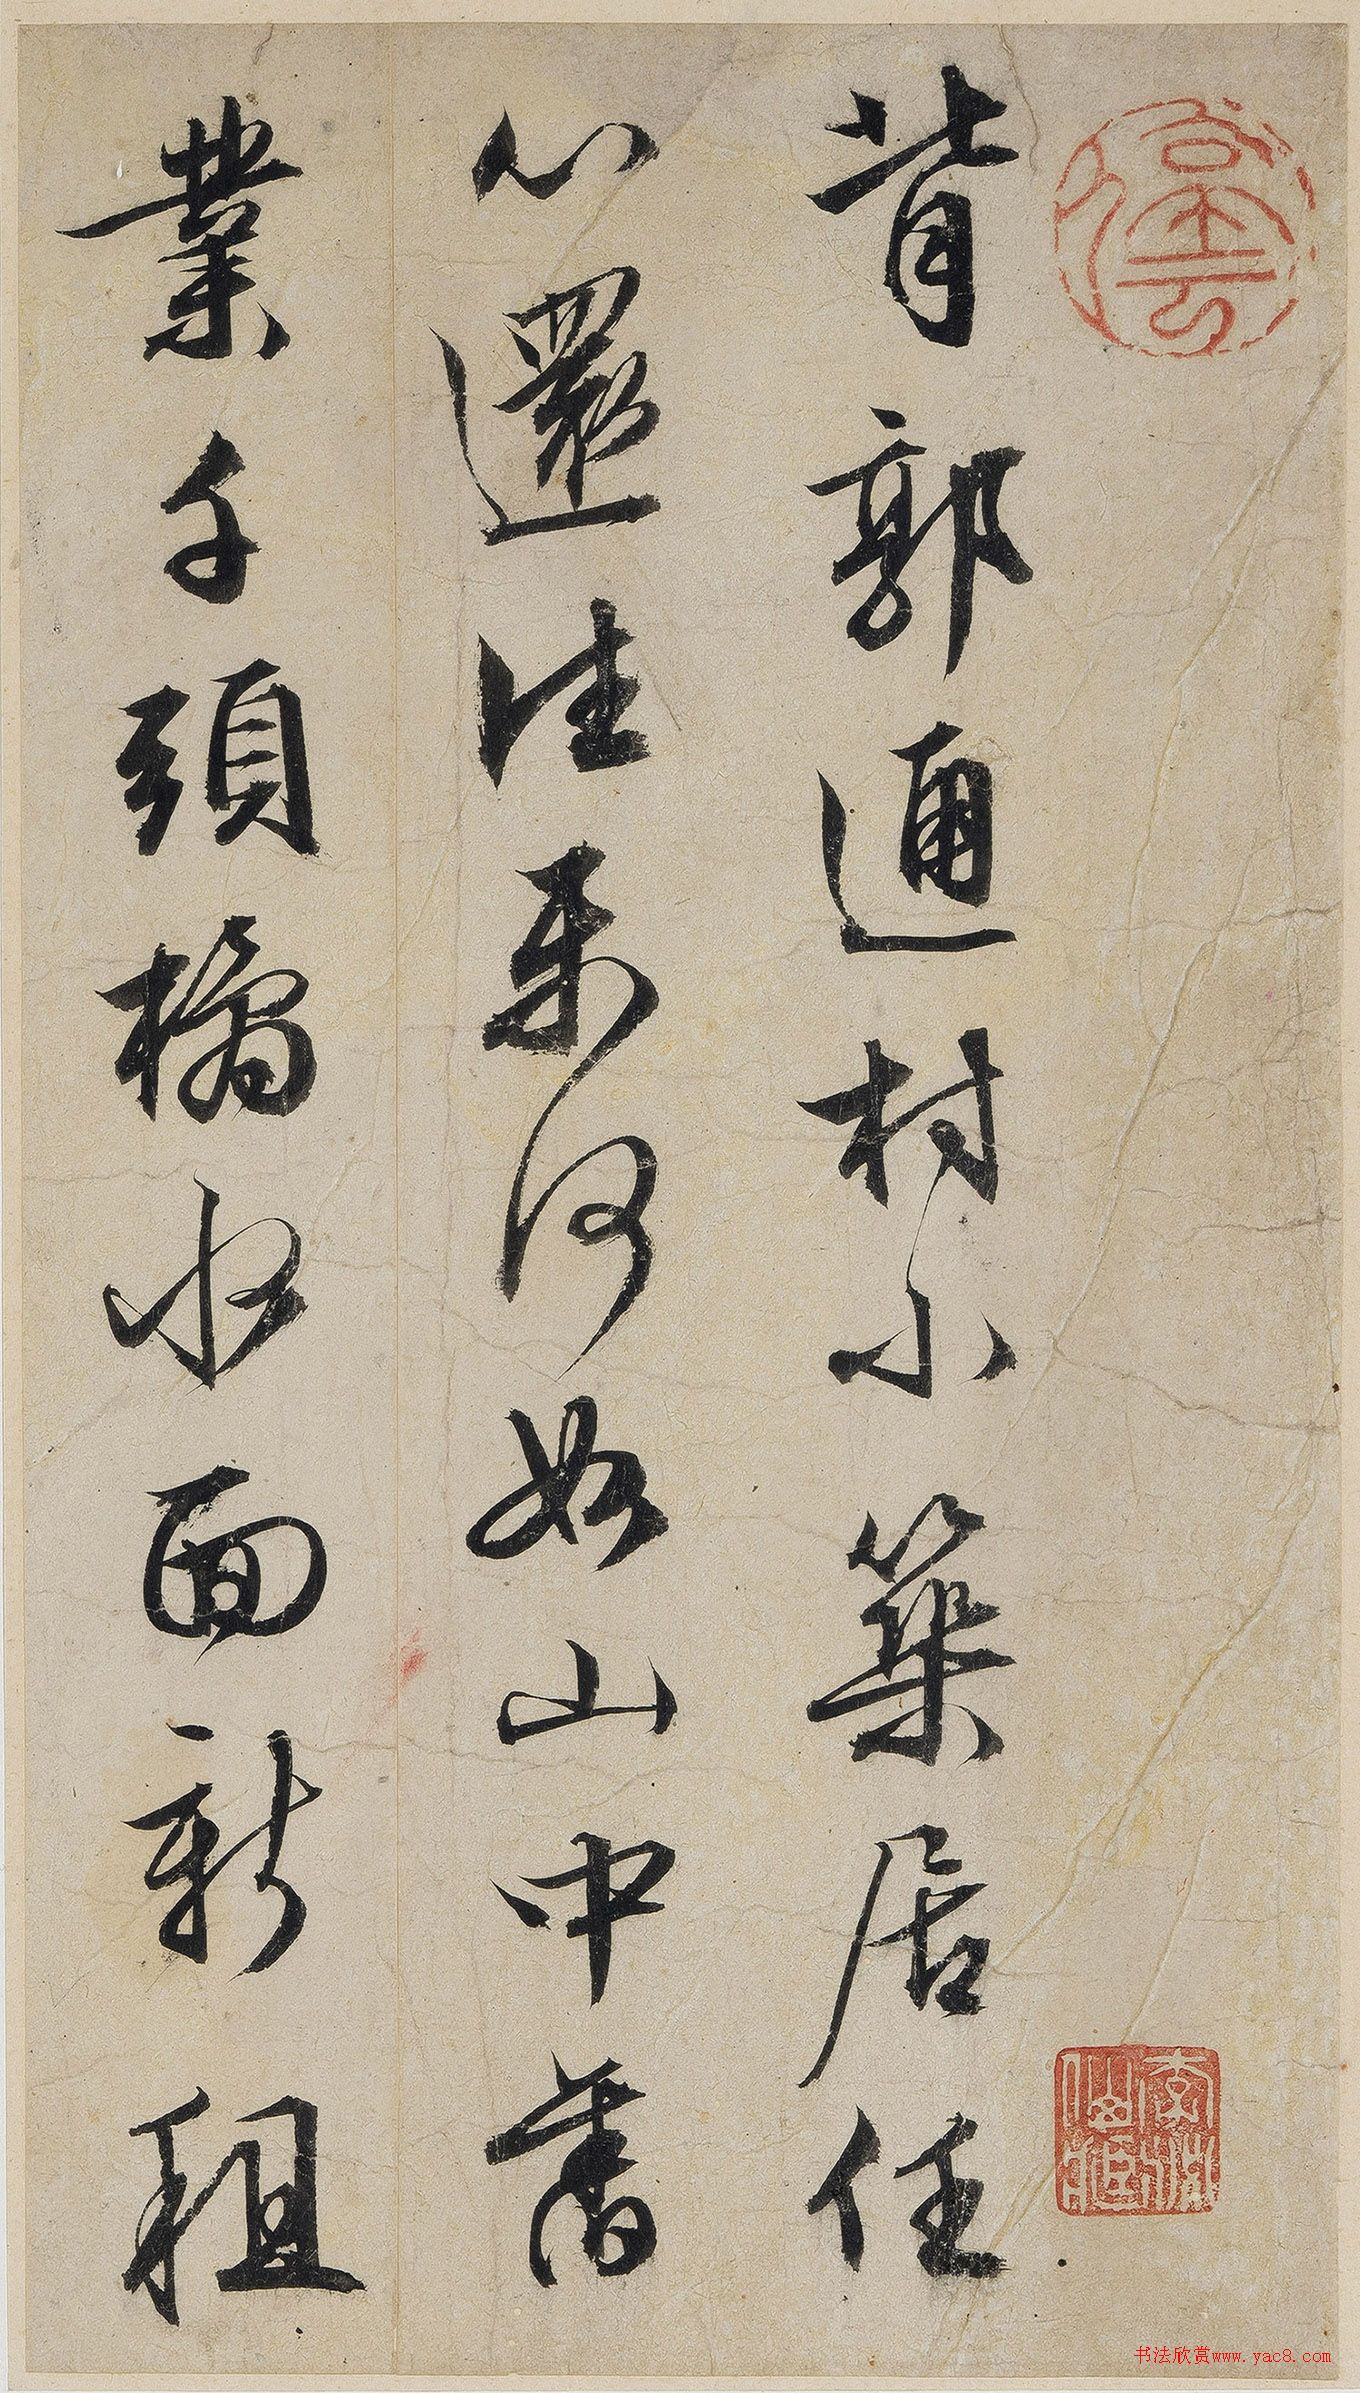 背郭通村小築居任
心還往來何如山中舊
業千頭橘水面新租
书法欣赏www.yac8.com